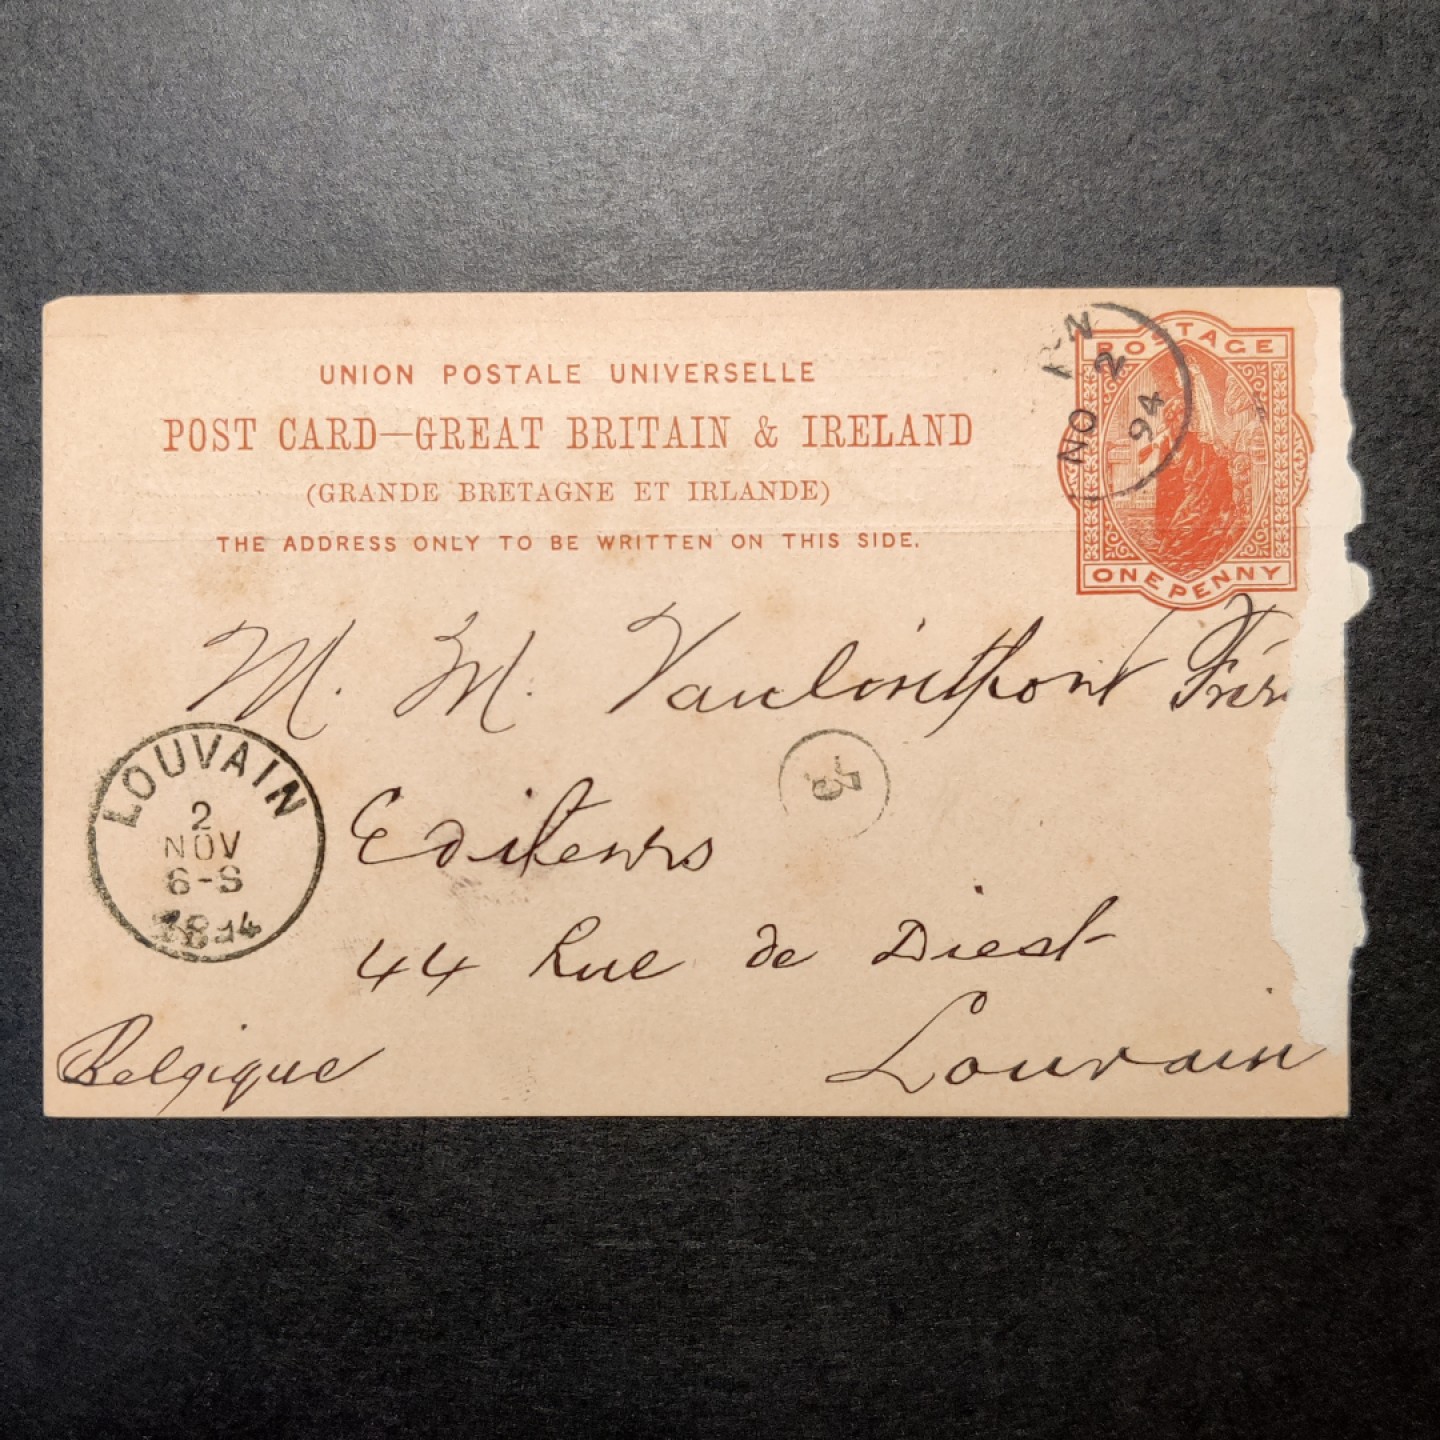 UNION POSTALE UNIVERSELLE
POST CARD—GREAT BRITAIN & IRELAND
(GRANDE BRETAGNE ET IRLANDE)
THE ADDRESS ONLY TO BE WRITTEN ON THIS SIDE.
POSTAGE
ONE PENNY
NO 2
94
M. M. Vanlinthout Frèr
LOUVAIN
2
NOV
6-S
1894
Editeurs
44 Rue de Diest
Louvain
Belgique